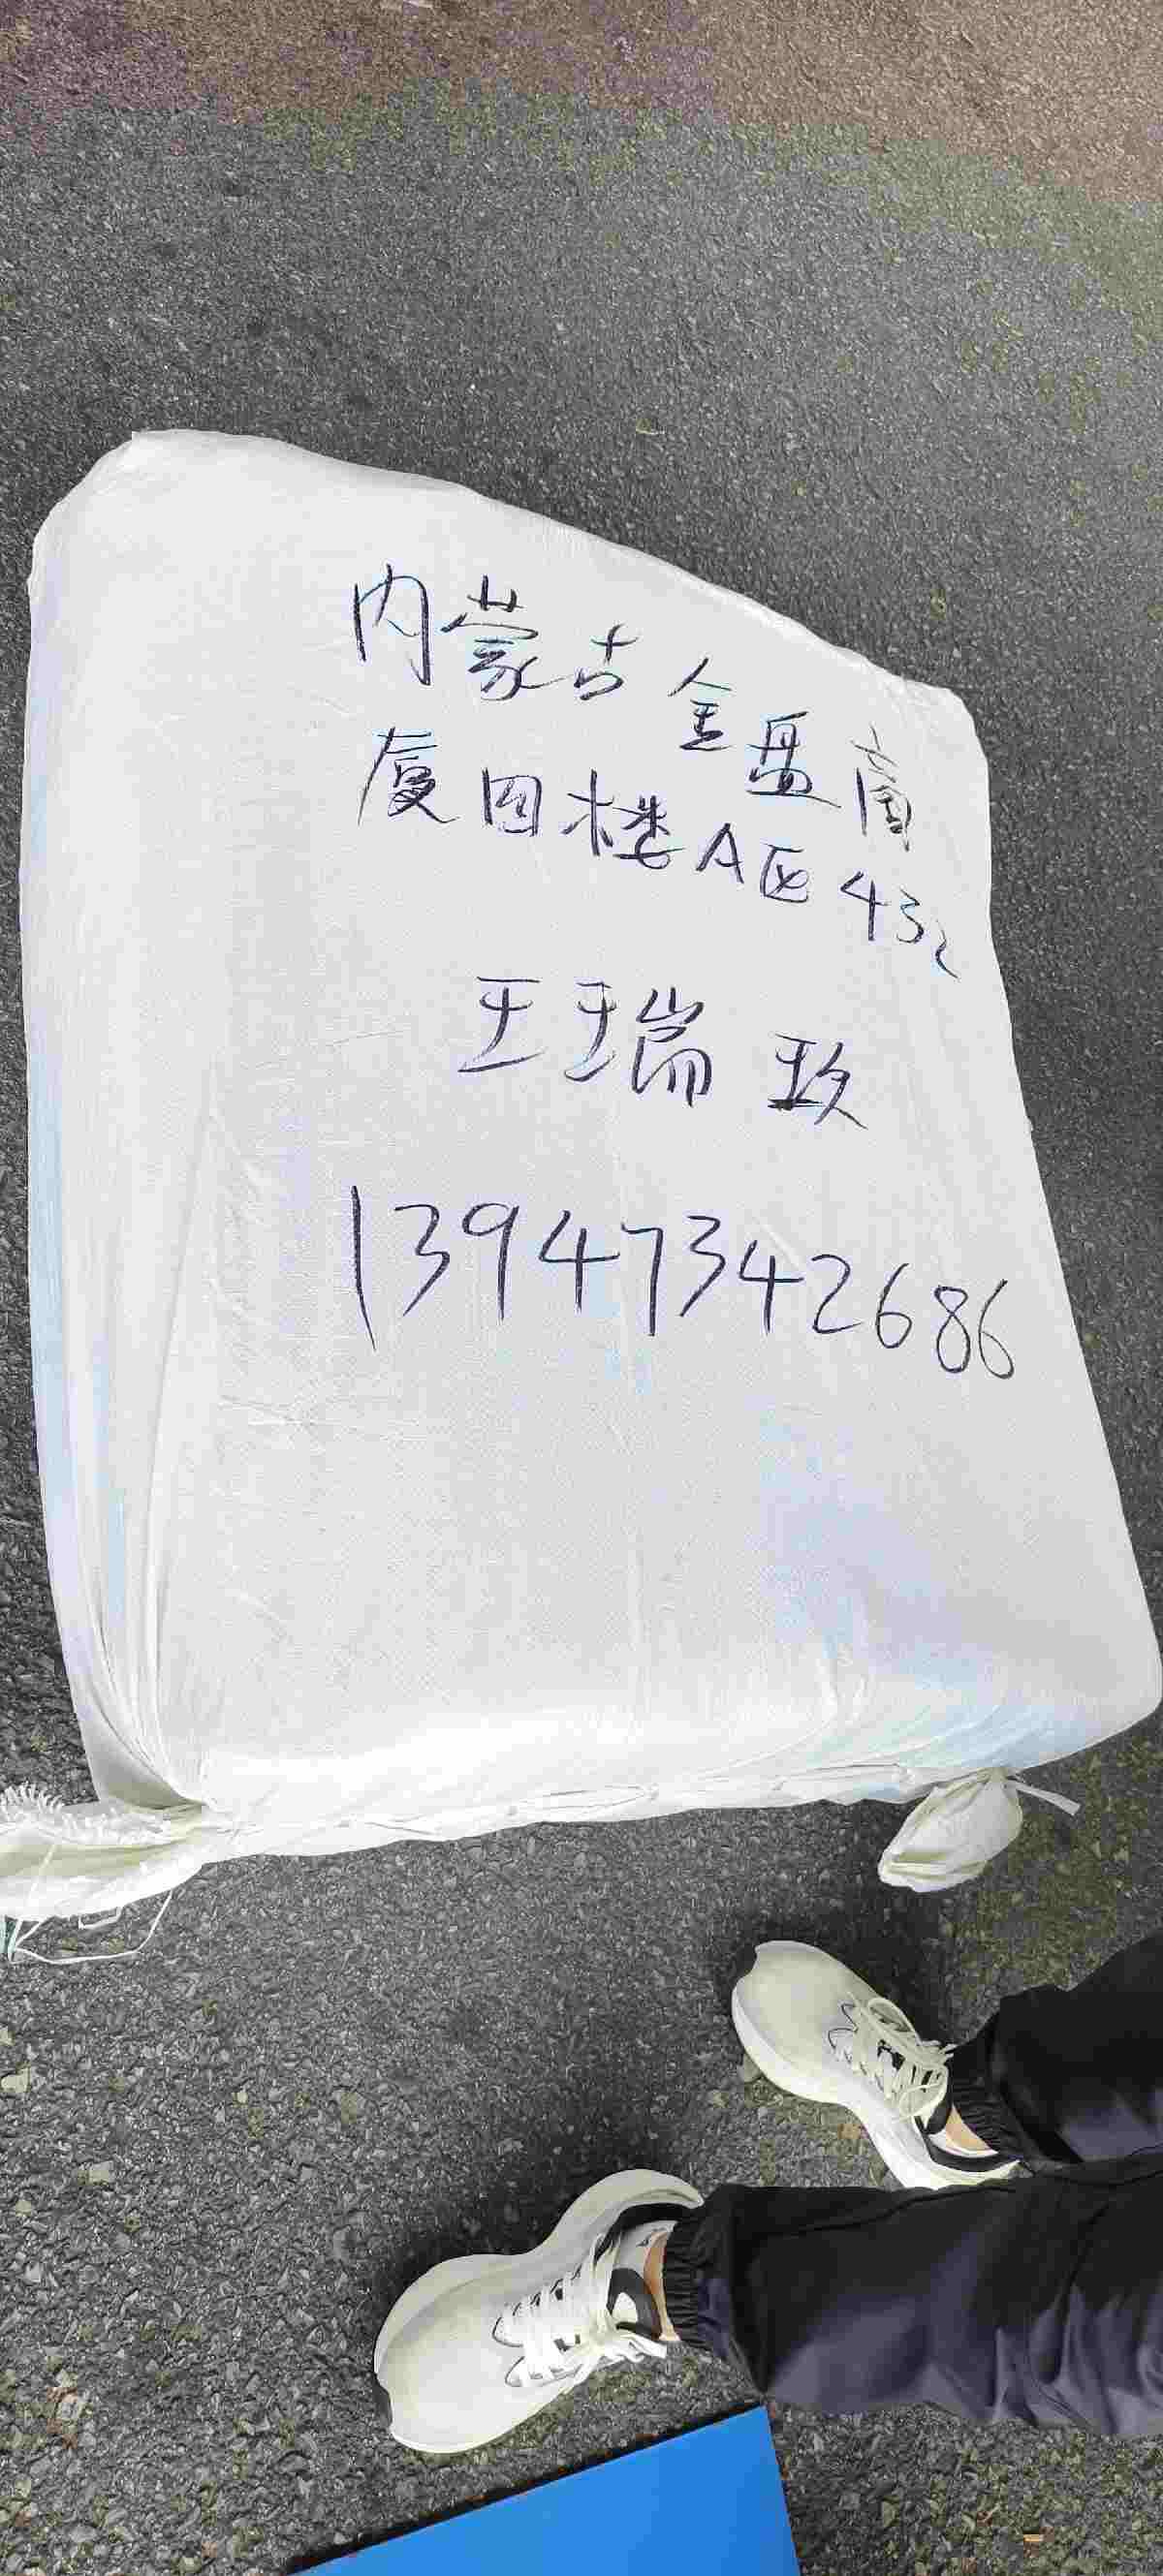 内蒙古金盘商
厦四楼A区432
王瑞玫
13947342686